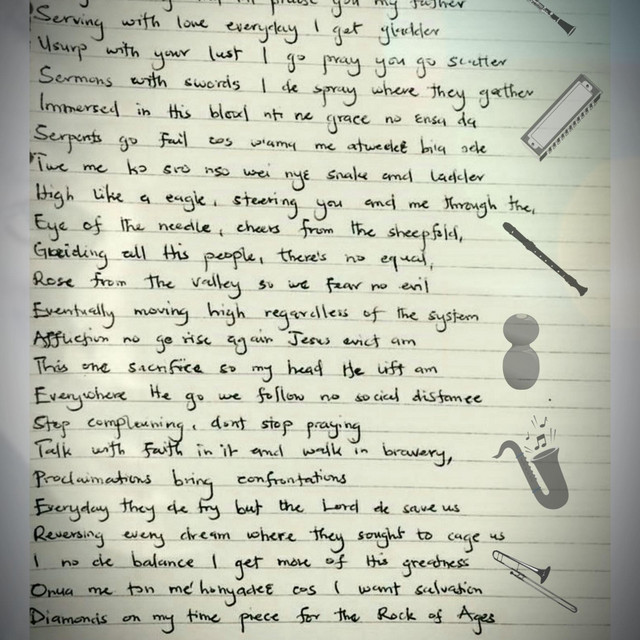 praise you my father
Serving with love everyday I get gladder
Usurp with your lust I go pray you go scatter
Sermons with swords I de spray where they gather
Immersed in His blood nti ne grace no ensa da
Serpents go fail cos wama me atweeɛ bia ode
Twe me ko sro nso wei nyɛ snake and ladder
High like a eagle, steering you and me through the,
Eye of the needle, cheers from the sheepfold,
Guiding all His people, there's no equal,
Rose from the valley so we fear no evil
Eventually moving high regardless of the system
Affliction no go rise again Jesus evict am
This one sacrifice so my head He lift am
Everywhere He go we follow no social distance
Stop complaining, dont stop praying
Talk with faith in it and walk in bravery,
Proclaimations bring confrontations
Everyday they de try but the Lord de save us
Reversing every dream where they sought to cage us
I no de balance I get more of His greatness
Onua me ton me'honyadeɛ cos I want salvation
Diamonds on my time piece for the Rock of Ages